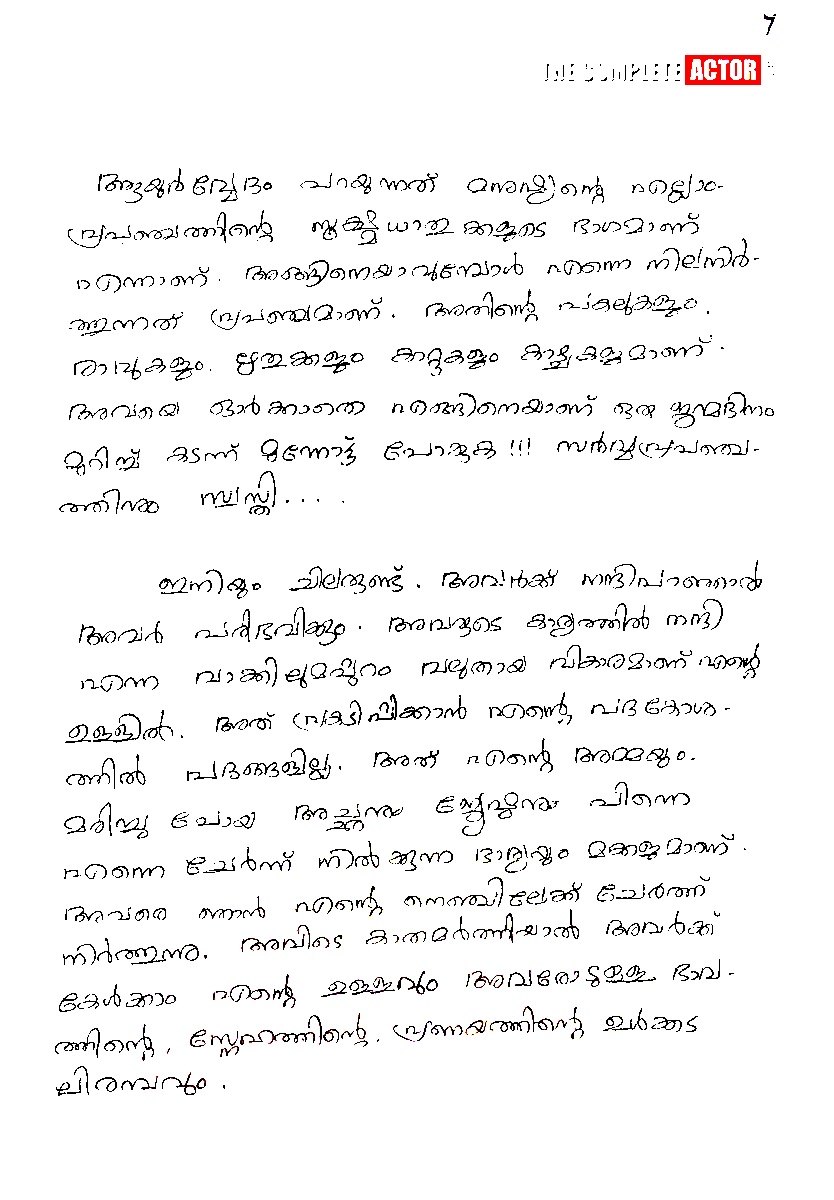 7
THE COMPLETE ACTOR
ആയുർവ്വേദം പറയുന്നത് മനുഷ്യന്റെ എല്ലാം
പ്രപഞ്ചത്തിന്റെ സൂക്ഷ്മധാതുക്കളുടെ ഭാഗമാണ്
എന്നാണ്. അങ്ങിനെയാവുമ്പോൾ എന്നെ നിലനിർ-
ത്തുന്നത് പ്രപഞ്ചമാണ്. അതിന്റെ പകലുകളും,
രാവുകളും. ഋതുക്കളും കാറ്റുകളും കാഴ്ചകളുമാണ്.
അവയെ ഓർക്കാതെ എങ്ങിനെയാണ് ഒരു ജന്മദിനം
മുറിച്ച് കടന്ന് മുന്നോട്ട് പോകുക!!! സർവ്വപ്രപഞ്ച-
ത്തിനും സ്വസ്തി....
ഇനിയും ചിലരുണ്ട്. അവർക്ക് നന്ദിപറഞ്ഞാൽ
അവർ പരിഭവിക്കും. അവരുടെ കാര്യത്തിൽ നന്ദി
എന്ന വാക്കിലുമപ്പുറം വലുതായ വികാരമാണ് എന്റെ
ഉള്ളിൽ. അത് പ്രകടിപ്പിക്കാൻ എന്റെ പദകോശ-
ത്തിൽ പദങ്ങളില്ല. അത് എന്റെ അമ്മയും.
മരിച്ചു പോയ അച്ഛനും ജ്യേഷ്ഠനും പിന്നെ
എന്നെ ചേർന്ന് നിൽക്കുന്ന ഭാര്യയും മക്കളുമാണ്.
അവരെ ഞാൻ എന്റെ നെഞ്ചിലേക്ക് ചേർത്ത്
നിർത്തുന്നു. അവിടെ കാതമർത്തിയാൽ അവർക്ക്
കേൾക്കാം എന്റെ ഉള്ളവും അവരോടുള്ള ഭാവ-
ത്തിന്റെ, സ്നേഹത്തിന്റെ, പ്രണയത്തിന്റെ ഉൾക്കട
ലിരമ്പവും.